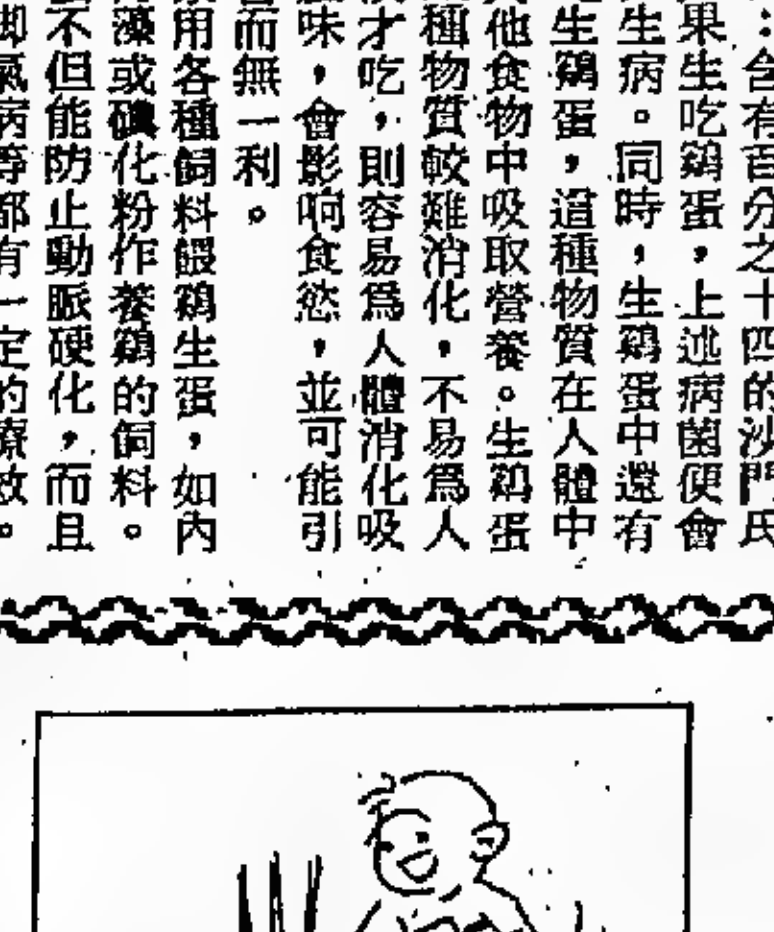 ：含有百分之十四的沙門氏
果生吃鷄蛋，上述病菌便會
生病。同時，生鷄蛋中還有
生鷄蛋，這種物質在人體中
他食物中吸取營養。生鷄蛋
種物質較難消化，不易爲人
才吃，則容易爲人體消化吸
味，會影响食慾，並可能引
而無一利。
用各種飼料餵鷄生蛋，如內
藻或碘化粉作養鷄的飼料。
不但能防止動脈硬化，而且
脚氣病等都有一定的療效。